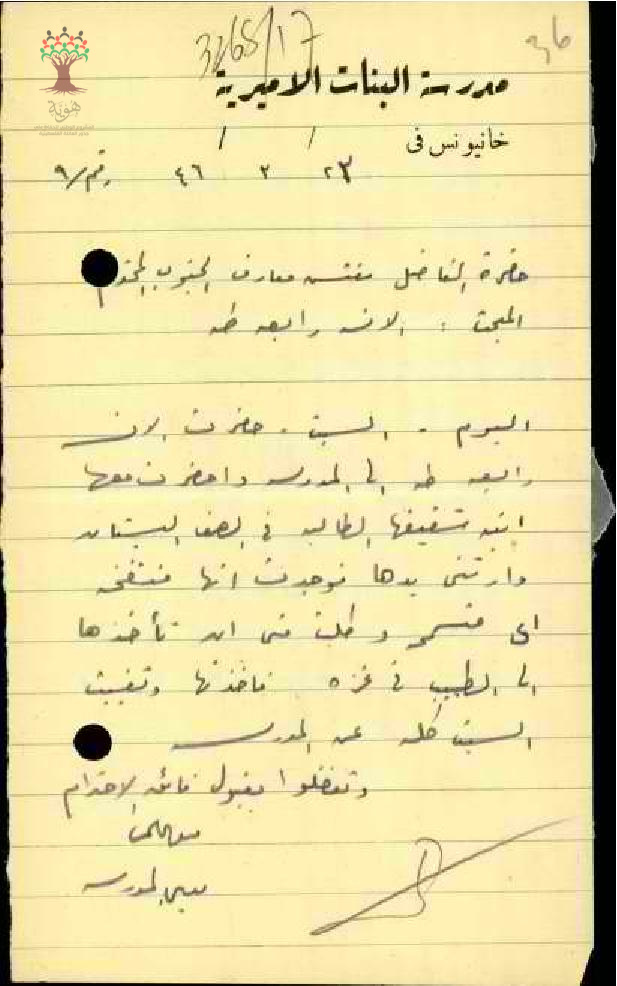 36
3268/17
مدرسة البنات الاميرية
خانيونس في / /
٢٣ ٢ ٤٦ رقم/٩
هوية
حضرة الفاضل مفتش معارف الجنوب المحترم
المبحث : الانسه رابعه طه
اليوم - السبت - حضرت الانسه
رابعه طه الى المدرسه واحضرت معها
ابنة شقيقها الطالبه في الصف البستان
وارتني يدها فوجدت انها منتفخه
وطلبت مني ان تأخذها
الى الطبيب في غزه فاخذتها وتغيبت
السبت كله عن المدرسه
وتفضلوا بقبول فائق الاحترام
المدرسه